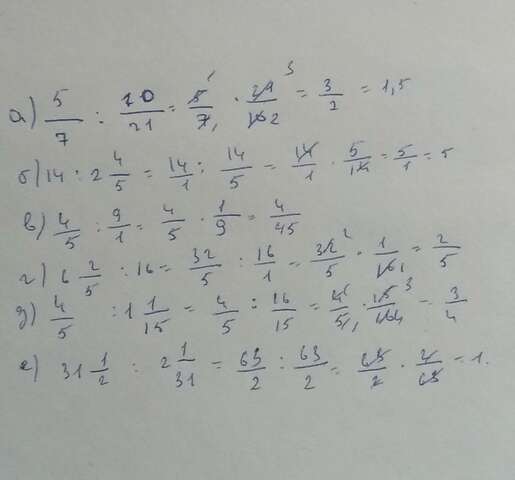 а) 5/7 : 10/21 = 5/7 · 21/10 = 3/2 = 1,5
б) 14 : 2 4/5 = 14/1 : 14/5 = 14/1 · 5/14 = 5/1 = 5
в) 4/5 : 9/1 = 4/5 · 1/9 = 4/45
г) 6 2/5 : 16 = 32/5 : 16/1 = 32/5 · 1/16 = 2/5
д) 4/5 : 1 1/15 = 4/5 : 16/15 = 4/5 · 15/16 = 3/4
е) 31 1/2 : 2 1/31 = 63/2 : 63/2 = 63/2 · 2/63 = 1.